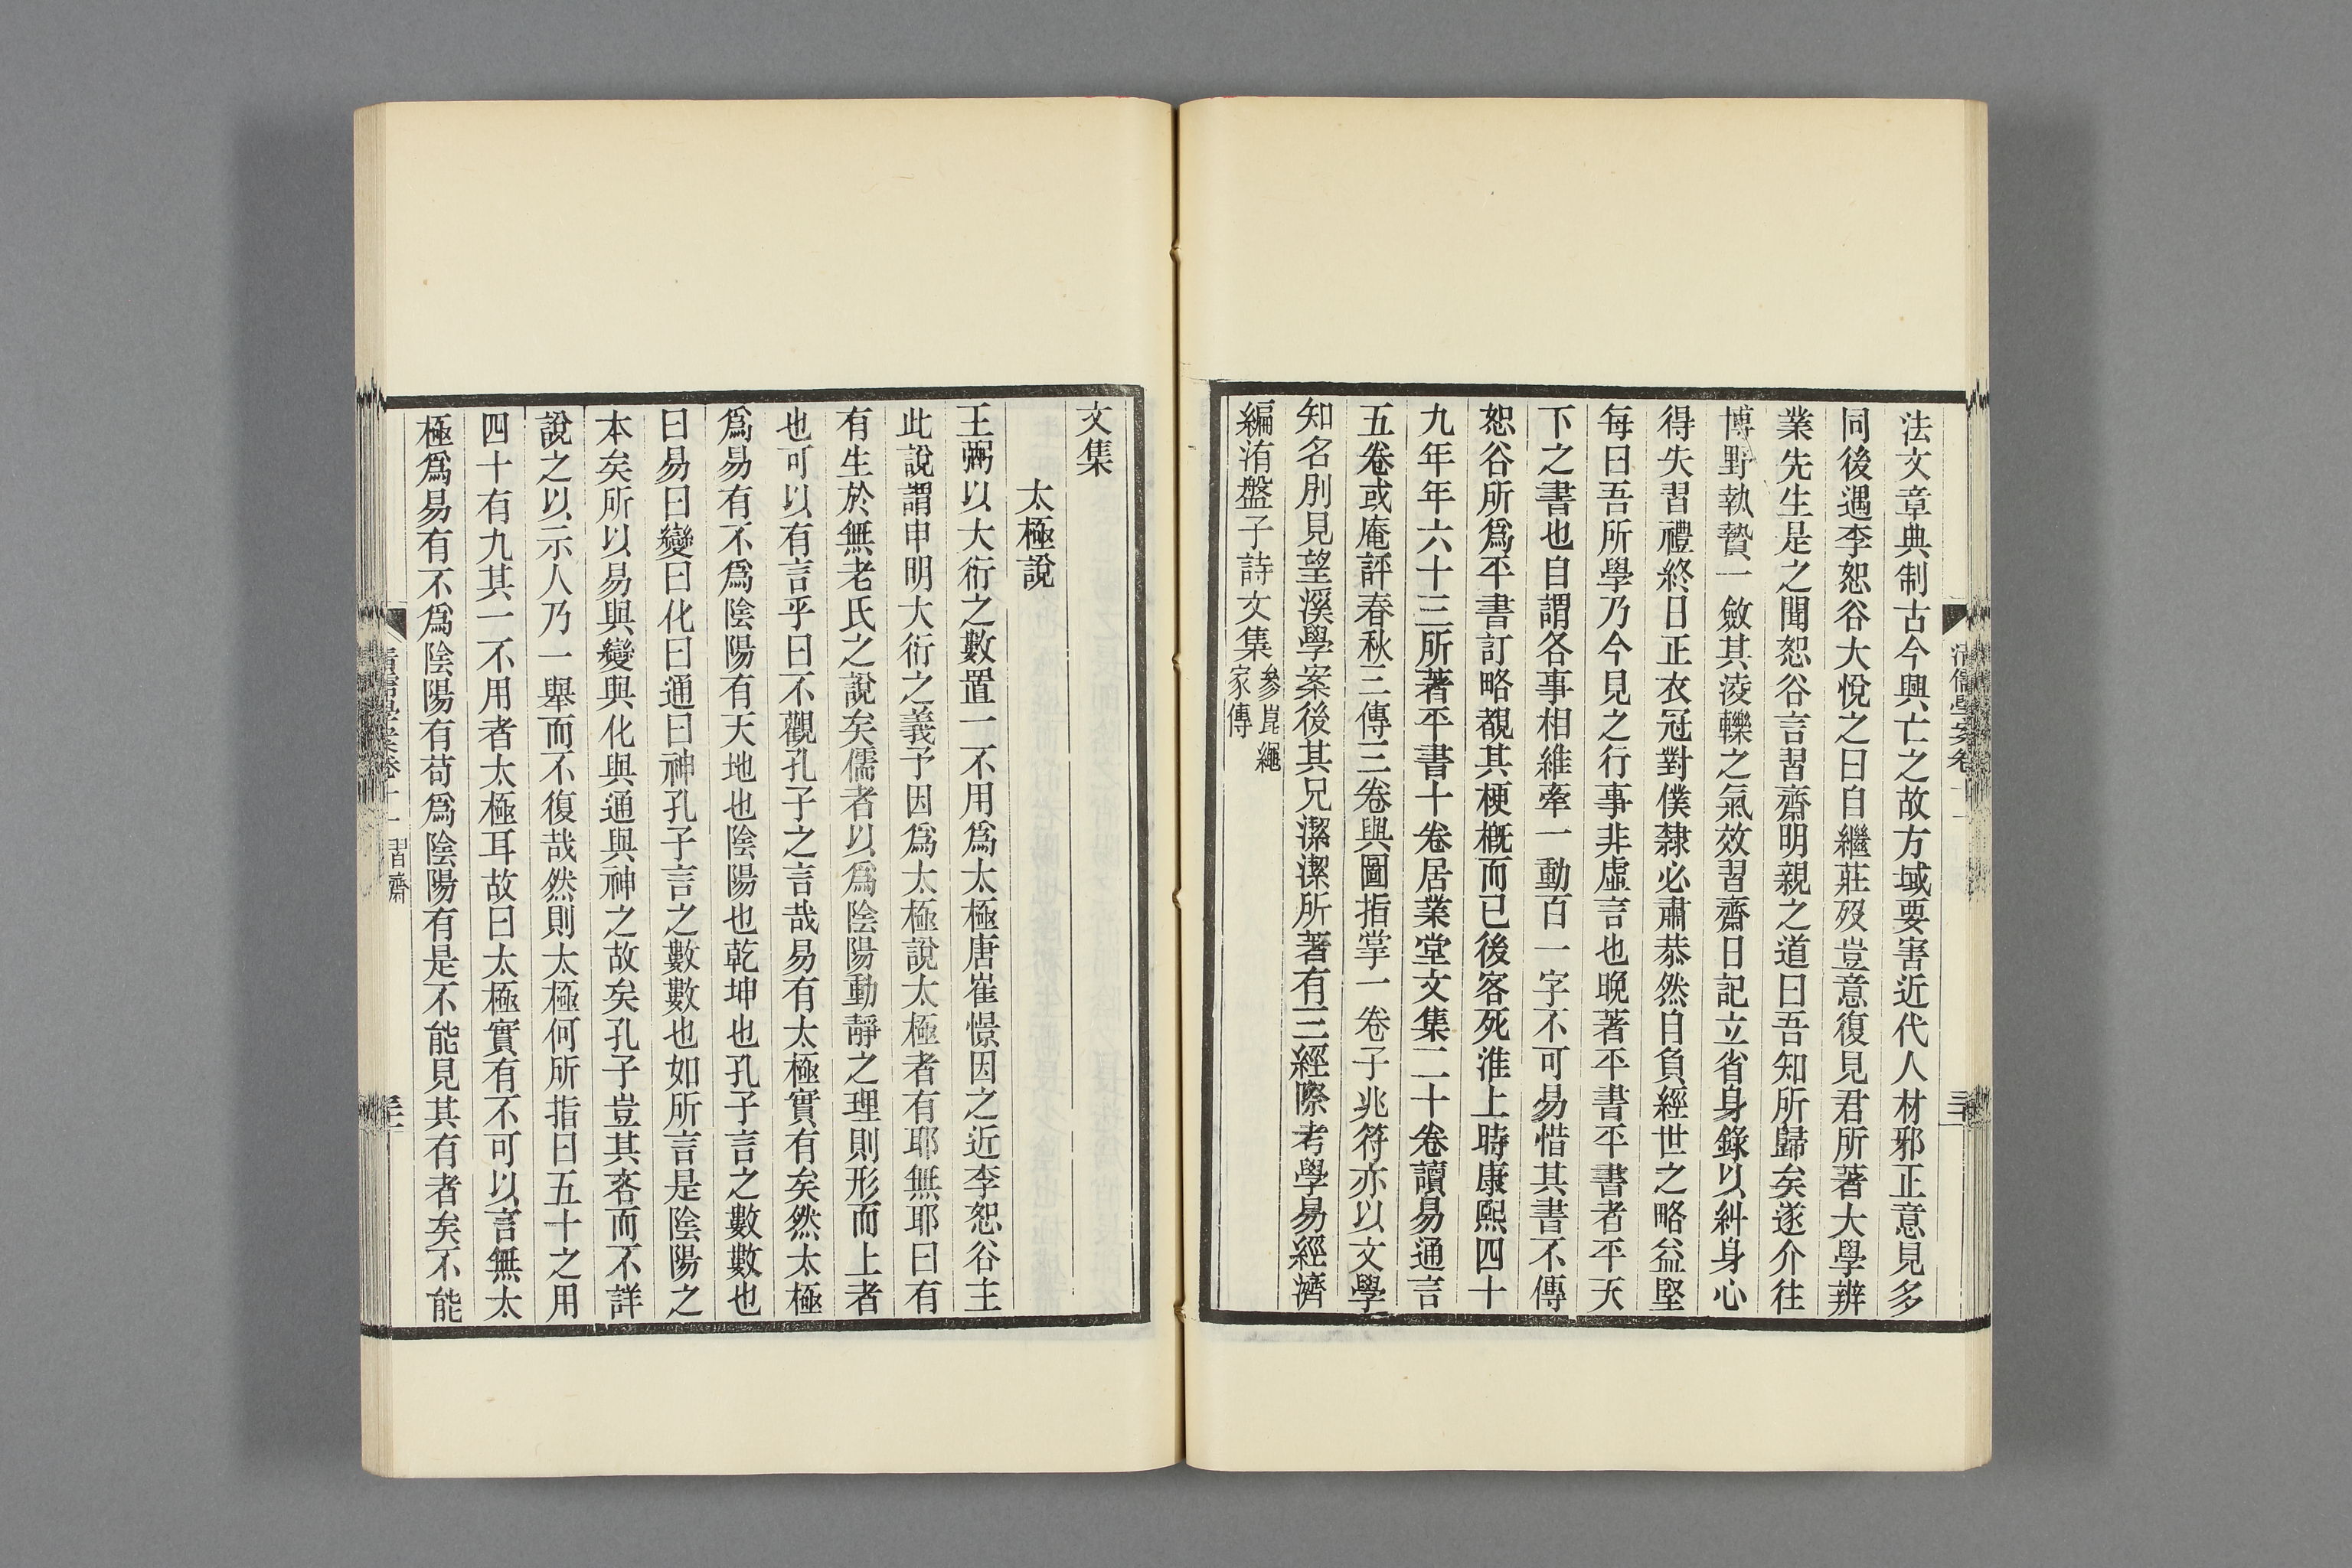 法文章典制古今興亡之故方域要害近代人材邪正意見多
同後遇李恕谷大悅之曰自繼莊歿豈意復見君所著大學辨
業先生是之聞恕谷言習齋明親之道曰吾知所歸矣遂介往
博野執贄一斂其淩轢之氣效習齋日記立省身錄以糾身心
得失習禮終日正衣冠對僕隸必肅恭然自負經世之略益堅
每曰吾所學乃今見之行事非虛言也晚著平書平書者平天
下之書也自謂各事相維牽一動百一字不可易惜其書不傳
恕谷所爲平書訂略覩其梗概而已後客死淮上時康熙四十
九年年六十三所著平書十卷居業堂文集二十卷讀易通言
五卷或庵評春秋三傳三卷輿圖指掌一卷子兆符亦以文學
知名別見望溪學案後其兄潔潔所著有三經際考學易經濟
編洧盤子詩文集
參崑繩
家傳
清儒學案卷十一
三十二
文集
太極說
王弼以大衍之數置一不用爲太極唐崔憬因之近李恕谷主
此說謂申明大衍之義予因爲太極說太極者有耶無耶曰有
有生於無老氏之說矣儒者以爲陰陽動靜之理則形而上者
也可以有言乎曰不觀孔子之言哉易有太極實有矣然太極
爲易有不爲陰陽有天地也陰陽也乾坤也孔子言之數數也
曰易曰變曰化曰通曰神孔子言之數數也如所言是陰陽之
本矣所以易與變與化與通與神之故矣孔子豈其吝而不詳
說之以示人乃一舉而不復哉然則太極何所指曰五十之用
四十有九其一不用者太極耳故曰太極實有不可以言無太
極爲易有不爲陰陽有苟爲陰陽有是不能見其有者矣不能
清儒學案卷十一 習齋